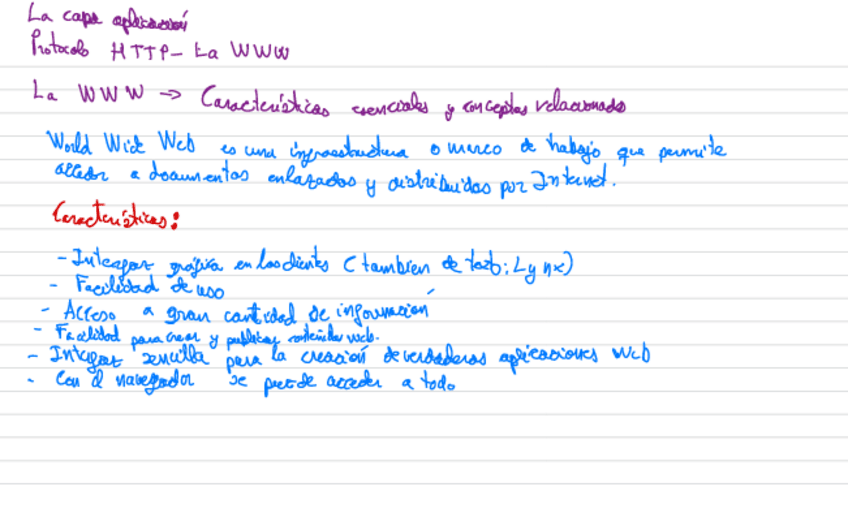 La capa aplicación
Protocolo HTTP - La WWW
La WWW -> Características esenciales y conceptos relacionados
World Wide Web es una infraestructura o marco de trabajo que permite
acceder a documentos enlazados y distribuidos por Internet.
Características:
- Interfaz gráfica en los clientes (tambien de texto; Lynx)
- Facilidad de uso
- Acceso a gran cantidad de información
- Facilidad para crear y publicar contenidos web.
- Interfaz sencilla para la creación de verdaderas aplicaciones Web
- Con el navegador se puede acceder a todo